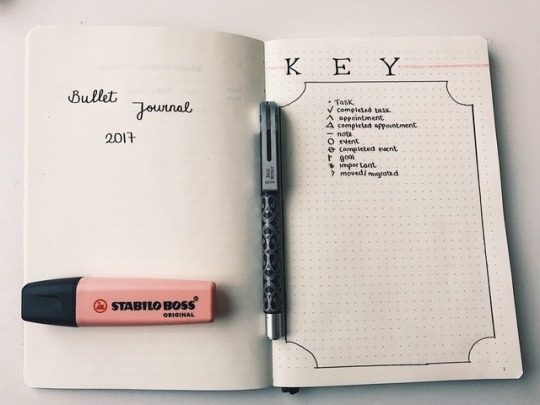 Bullet
Journal
2017
KEY
• Task
✓ completed task
∧ appointment
△ completed appointment
– note
O event
⊖ completed event
goal
important
moved/migrated
STABILO BOSS®
ORIGINAL
1